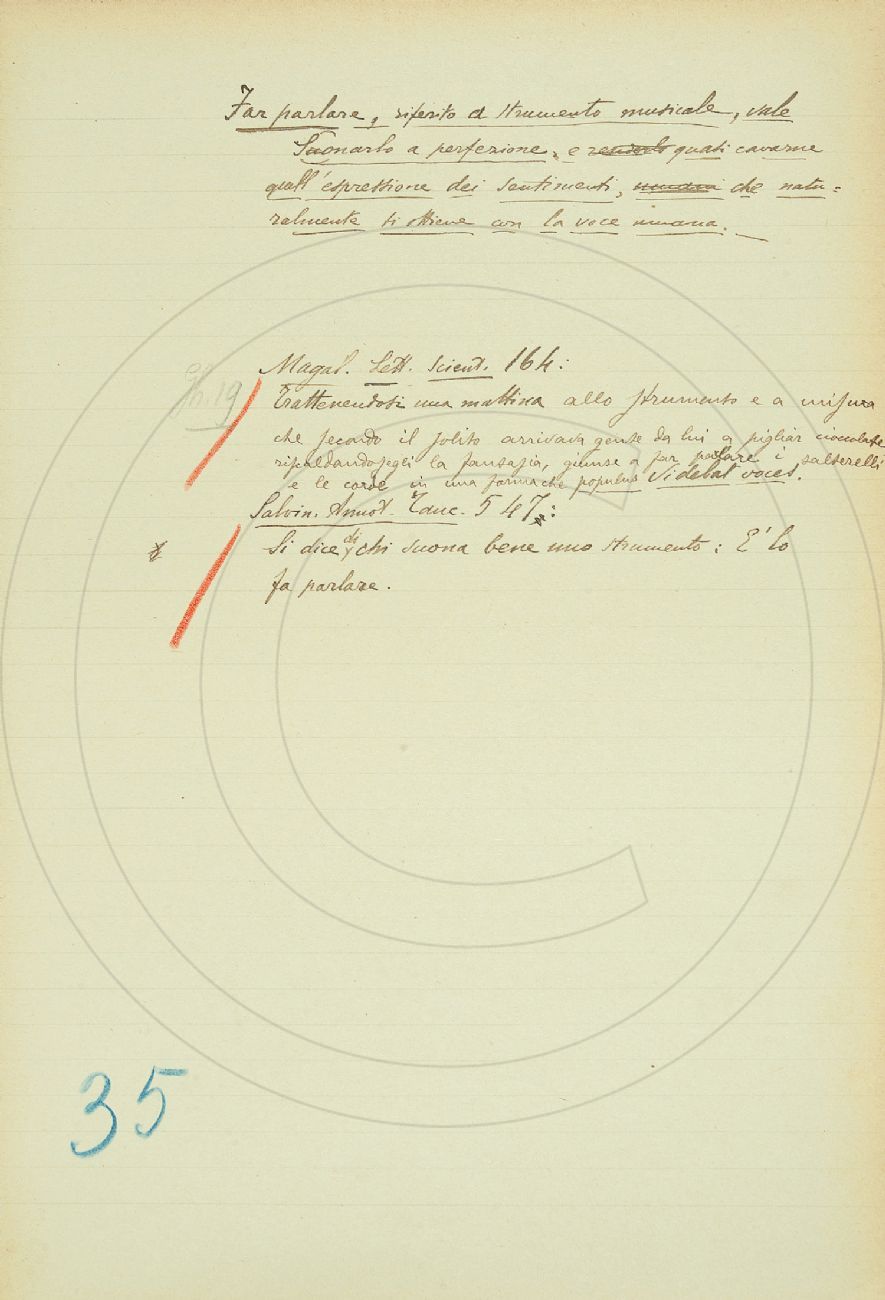 Far parlare, riferito a strumento musicale, vale
Suonarlo a perfezione, e quasi cavarne
quell'espressione dei sentimenti, che natu=
ralmente si ottiene con la voce umana.
Magal. Lett. scient. 164:
Gh. 19
Trattenendosi una mattina allo strumento e a misura
che secondo il solito arrivava gente da lui a pigliar cioccolate
riscaldandosegli la fantasia, giunse a far parlare i salterelli
e le corde in una forma che populus videbat voces.
Salvin. Annot. Tanc. 547:
Si dice di chi suona bene uno strumento: E' lo
fa parlare.
35